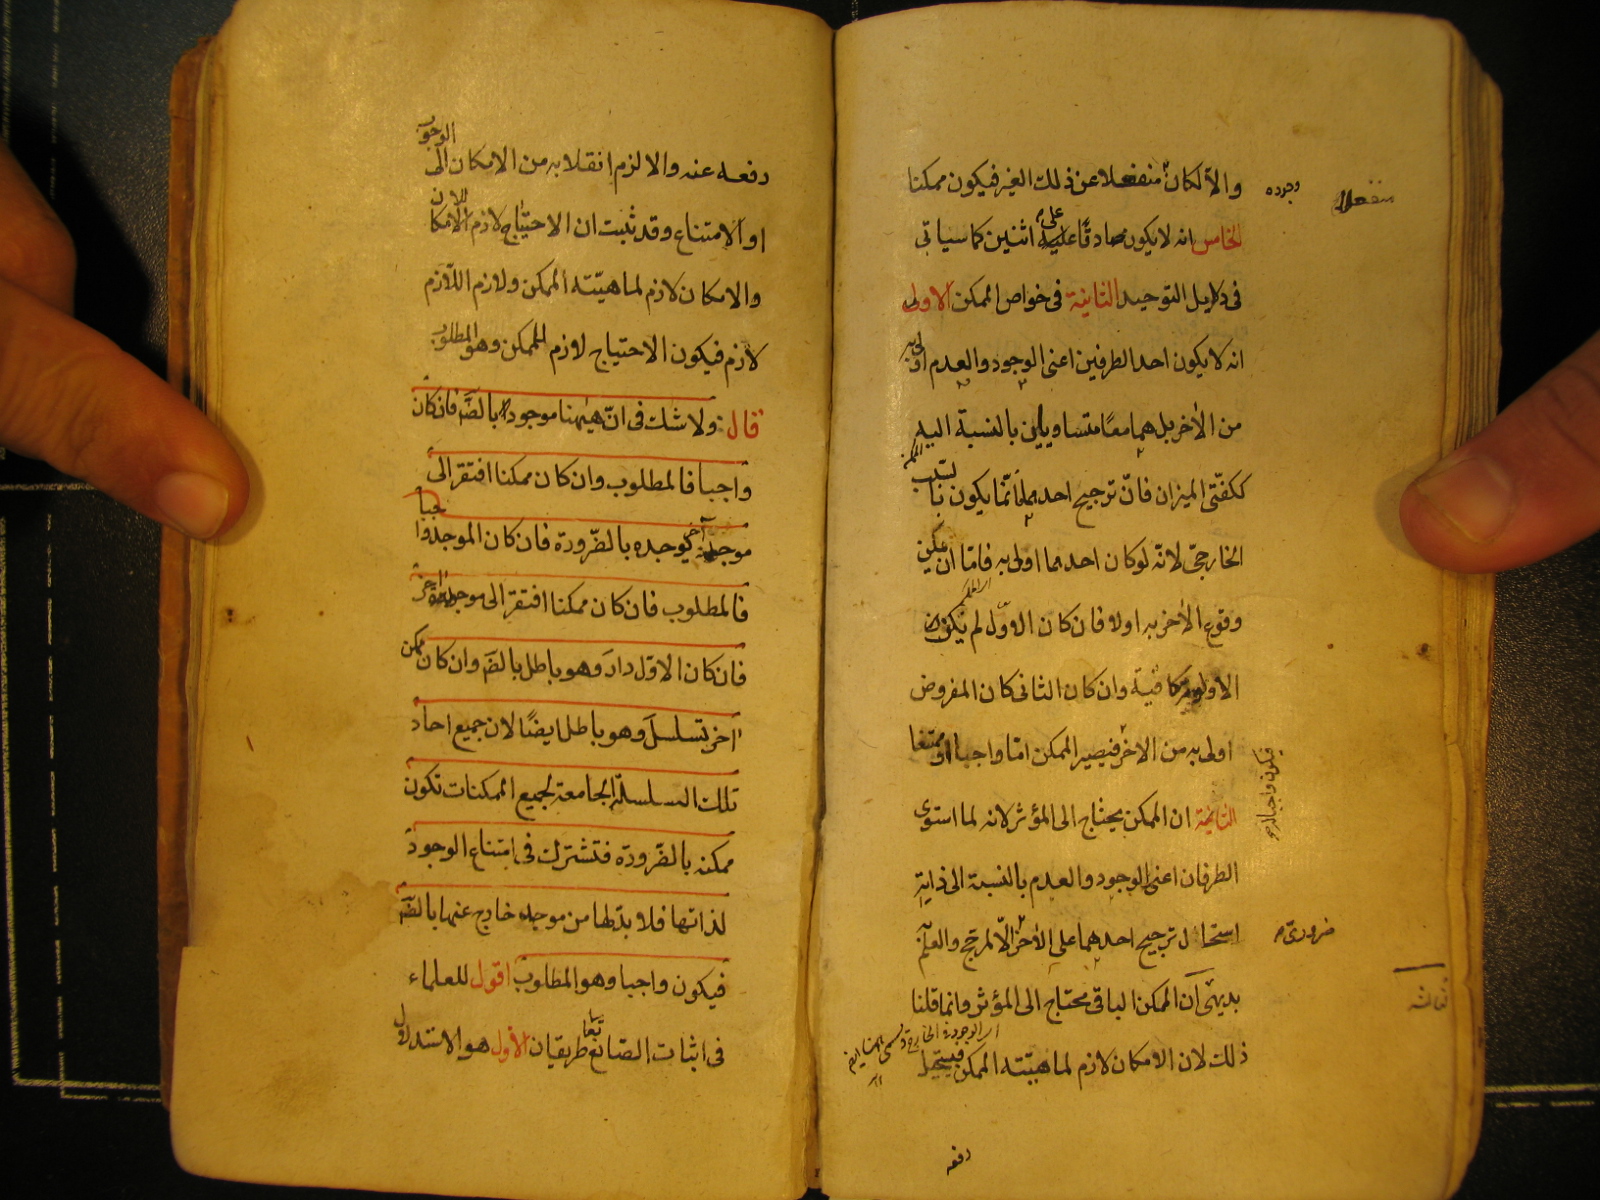 والا لكان منفعلا عن ذلك الغير فيكون ممكنا
وجوده
منفعلا
الخامس انه لا يكون صادقا على اثنين كما سياتى
فى دلايل التوحيد الثانية فى خواص الممكن الاولى
انه لا يكون احد الطرفين اعنى الوجود والعدم اولى به
من الاخر بل هما معًا متساويان بالنسبة اليه
ككفتى الميزان فانّ ترجيح احدهما انّما يكون بالسبب
الخارجىّ لانّه لو كان احدهما اولى به فامّا ان يمكن
وقوع الاخر به اولا فان كان الاوّل لم يكن
الاولوية كافية وان كان الثانى كان المفروض
اولى به من الاخر فيصير الممكن امّا واجبا او ممتنعا
فيكون واجبا
الثانية ان الممكن يحتاج الى المؤثر لانه لما استوى
الطرفان اعنى الوجود والعدم بالنسبة الى ذاته
استحال ترجيح احدهما على الاخر الّا لمرجح والعلم
ضرورىّ
بديهى
ثالثه
آن الممكن الباقى محتاج الى المؤثر وانما قلنا
ذلك لان الامكان لازم لماهيّته الممكن فيستحيل
دفعه
دفعه عنه والا لزم انقلابه من الامكان الى الوجوب
او الامتناع وقد ثبت ان الاحتياج لازم للامكان
والامكان لازم لماهيّته الممكن ولازم اللّازم
لازم فيكون الاحتياج لازم للممكن وهو المطلوب
قال ولا شك فى انّ هيهنا موجودا بالضّر فان كان
واجبا فالمطلوب وان كان ممكنا افتقر الى
موجد آخر يوجده بالضّرورة فان كان الموجد واجبا
فالمطلوب فان كان ممكنا افتقر الى موجد اخر
فان كان الاوّل دار وهو باطل بالضّر وان كان ممكن
اخر تسلسل وهو باطل ايضًا لان جميع احاد
تلك السلسلة الجامعة لجميع الممكنات تكون
ممكنه بالضّرورة فتشترك فى امتناع الوجود
لذاتها فلا بدّ لها من موجد خارج عنها بالضّر
فيكون واجبا وهو المطلوب اقول للعلماء
فى اثبات الصّانع تعا طريقان الاول هو الاستدلال